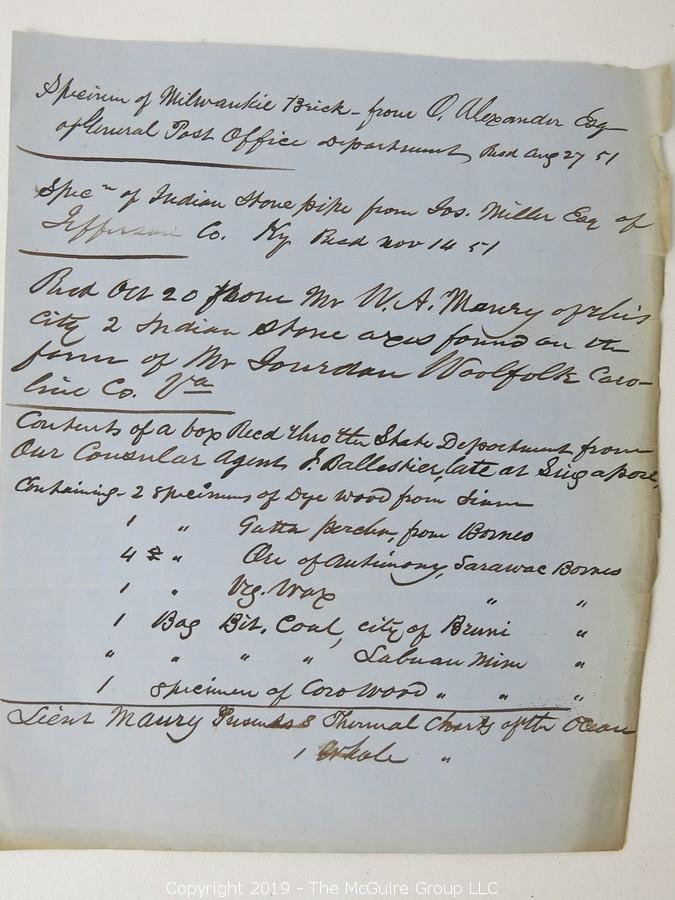 Specimen of Milwaukie Brick - from O. Alexander Esq
of General Post Office Department, Recd Aug 27 51
Specn of Indian Stone pipe from Jos. Miller Esq of
Jefferson Co. Ky Recd Nov 14 51
Recd Oct 20 from Mr W. A. Maury of this
city 2 Indian Stone axes found on the
farm of Mr Jourdan Woolfolk Caro-
line Co. Va
Contents of a box Recd thro the State Department from
Our Consular Agent J. Ballestier, late at Singapore,
Containing - 2 specimens of Dye wood from Siam
1 " Gutta percha, from Borneo
4 " Ore of Antimony, Sarawac Borneo
1 " Veg. Wax " "
1 Bag Bit. Coal, city of Bruni "
" " " " Labuan Mine "
1 specimen of Coro Wood " " "
Lieut Maury Presents 3 Thermal Charts of the Ocean
1 Whale "
Copyright 2019 - The McGuire Group LLC